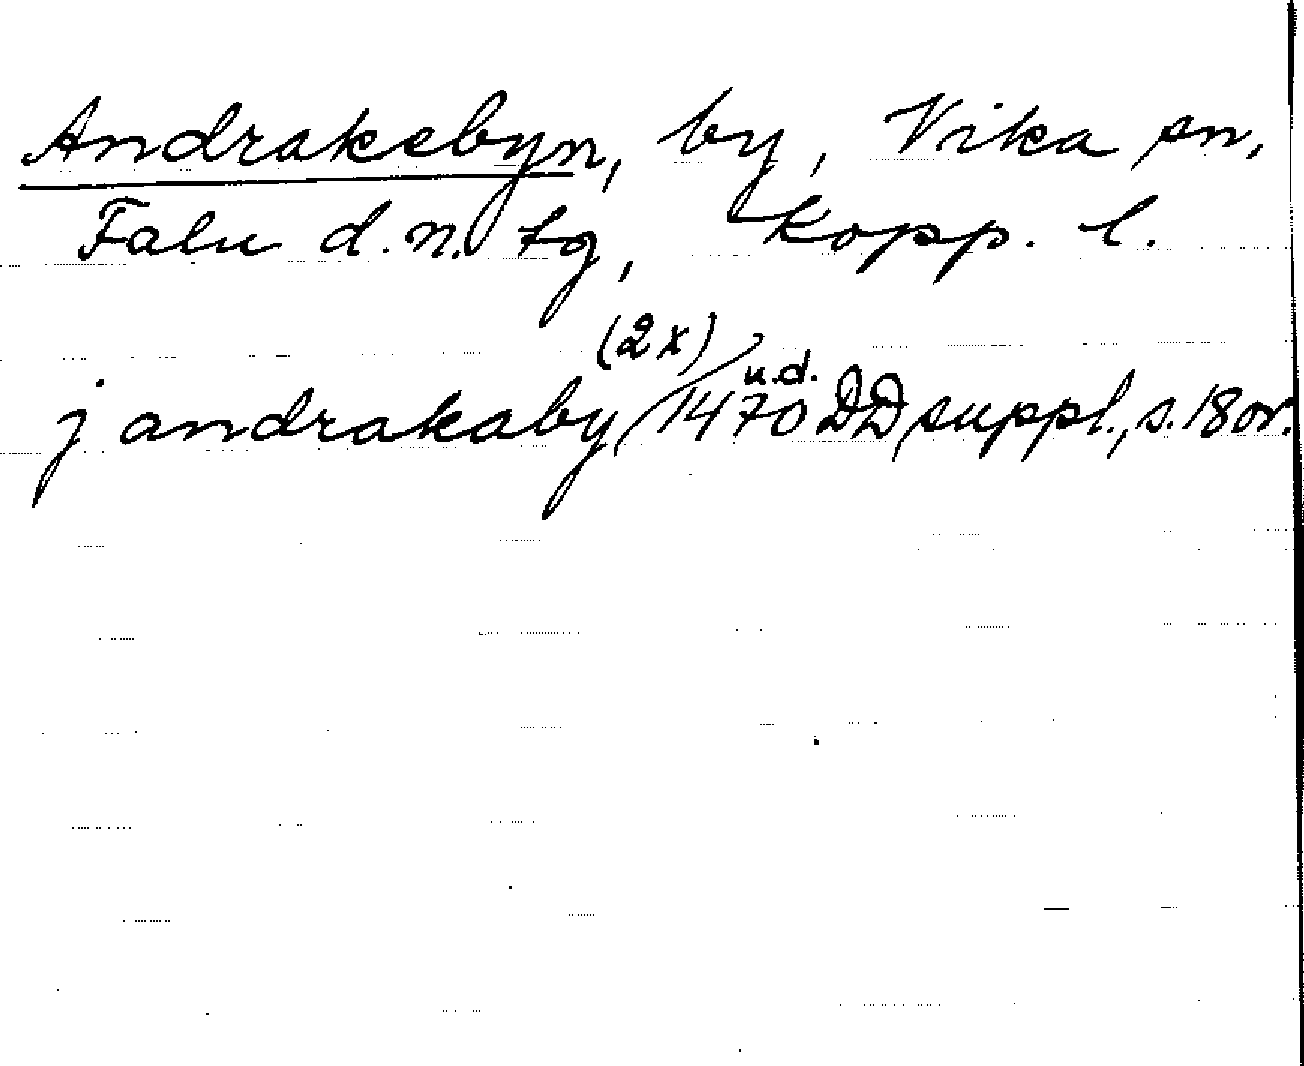 Andrakebyn, by, Vika sn,
Falu d.n. tg, Kopp. l.
j andrakaby (2x) 1470 u.d. DD suppl., s. 18 or.